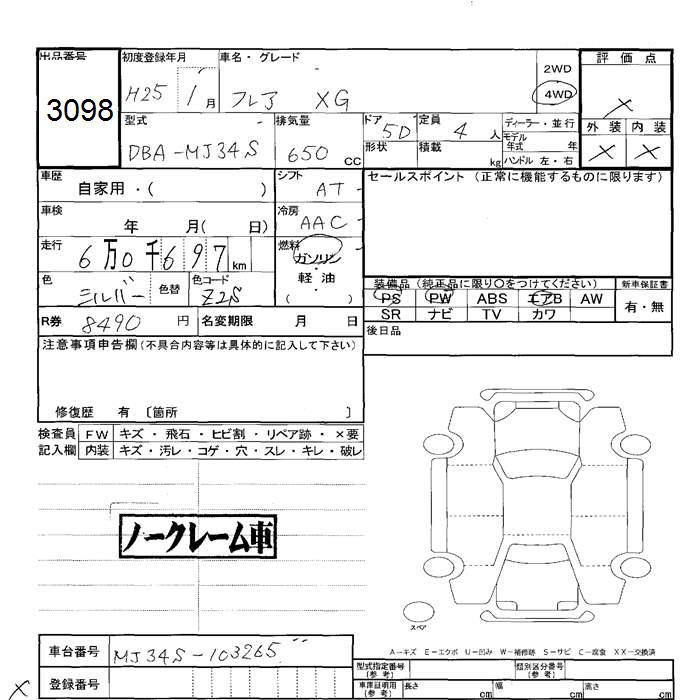 出品番号 初度登録年月 車名・グレード 評価点
3098 H25 1月 フレア XG 2WD 4WD ×
型式 排気量 ドア 5D 定員 4人 ディーラー・並行 外装 内装
DBA-MJ34S 650CC 形状 積載 kg モデル年式 年 ハンドル 左・右 × ×
車歴 自家用・( ) シフト AT セールスポイント(正常に機能するものに限ります)
車検 年 月( 日) 冷房 AAC
走行 6万0千697km 燃料 ガソリン・軽油 ( )
色 シルバー 色替 色コード Z2S
装備品(純正品に限り○をつけてください) 新車保証書
PS PW ABS エアB AW 有・無
SR ナビ TV カワ
R券 8490円 名変期限 月 日 後日品
注意事項申告欄(不具合内容等は具体的に記入して下さい)
修復歴 有 〔箇所 〕
検査員 FW キズ・飛石・ヒビ割・リペア跡・×要
記入欄 内装 キズ・汚レ・コゲ・穴・スレ・キレ・破レ
ノークレーム車
スペア
A-キズ E-エクボ U-凹み W-補修跡 S-サビ C-腐食 XX-交換済
車台番号 MJ34S-103265 型式指定番号(参考) 類別区分番号(参考)
× 登録番号 車庫証明用(参考) 長さ cm 幅 cm 高さ cm